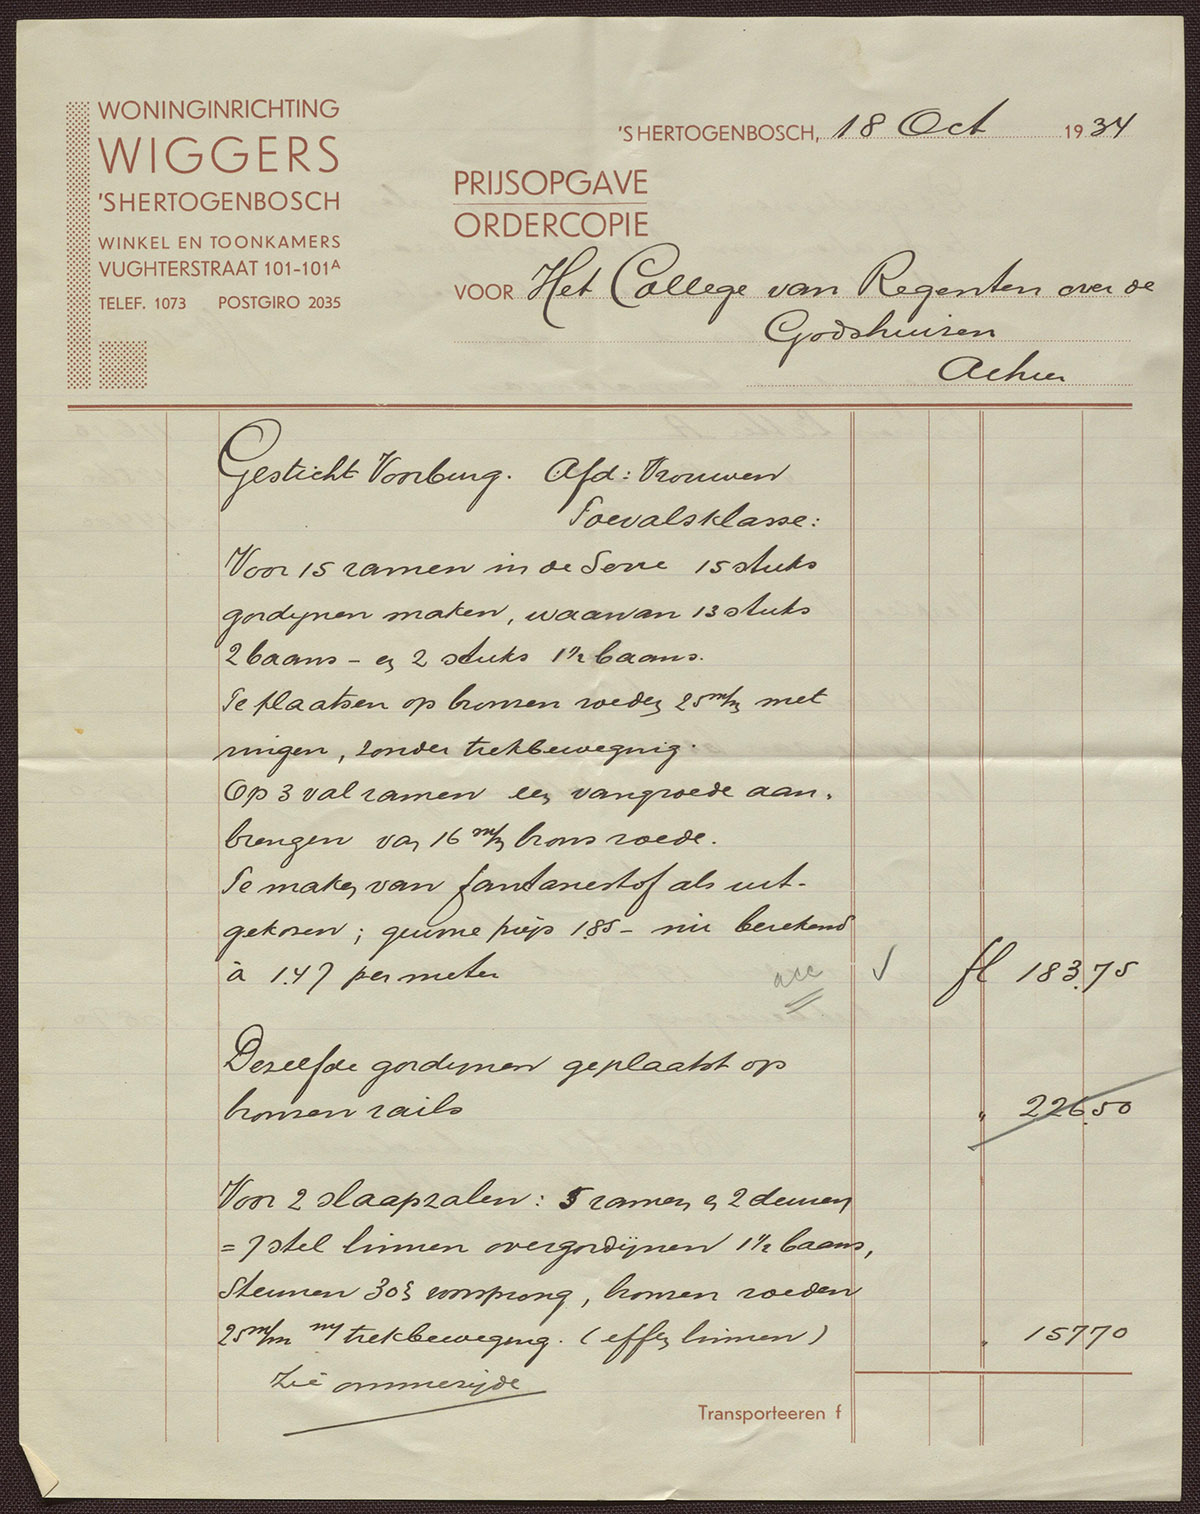 WONINGINRICHTING
WIGGERS
'SHERTOGENBOSCH
WINKEL EN TOONKAMERS
VUGHTERSTRAAT 101-101A
TELEF. 1073 POSTGIRO 2035
'SHERTOGENBOSCH, 18 Oct 1934
PRIJSOPGAVE
ORDERCOPIE
VOOR Het College van Regenten over de
Godshuizen
Alhier
Gesticht Voorburg. Afd: Vrouwen
Toevalsklasse:
Voor 15 ramen in de Serre 15 stuks
gordijnen maken, waarvan 13 stuks
2 baans - en 2 stuks 1½ baans.
Te plaatsen op bronzen roeden 25 m/m met
ringen, zonder trekbeweging.
Op 3 valramen een vangroede aan-
brengen van 16 m/m brons roede.
Te maken van fantasiestof als uit-
gekozen; gewone prijs 1.85 - nu berekend
à 1.47 per meter acc √ fl 183.75
Dezelfde gordijnen geplaatst op
bronzen rails " 226.50
Voor 2 slaapzalen: 5 ramen en 2 deuren
= 7 stel linnen overgordijnen 1½ baans,
steunen 30 voorsprong, bronzen roeden
25 m/m m/ trekbeweging. (effen linnen) " 157.70
Zie ommezijde
Transporteeren f